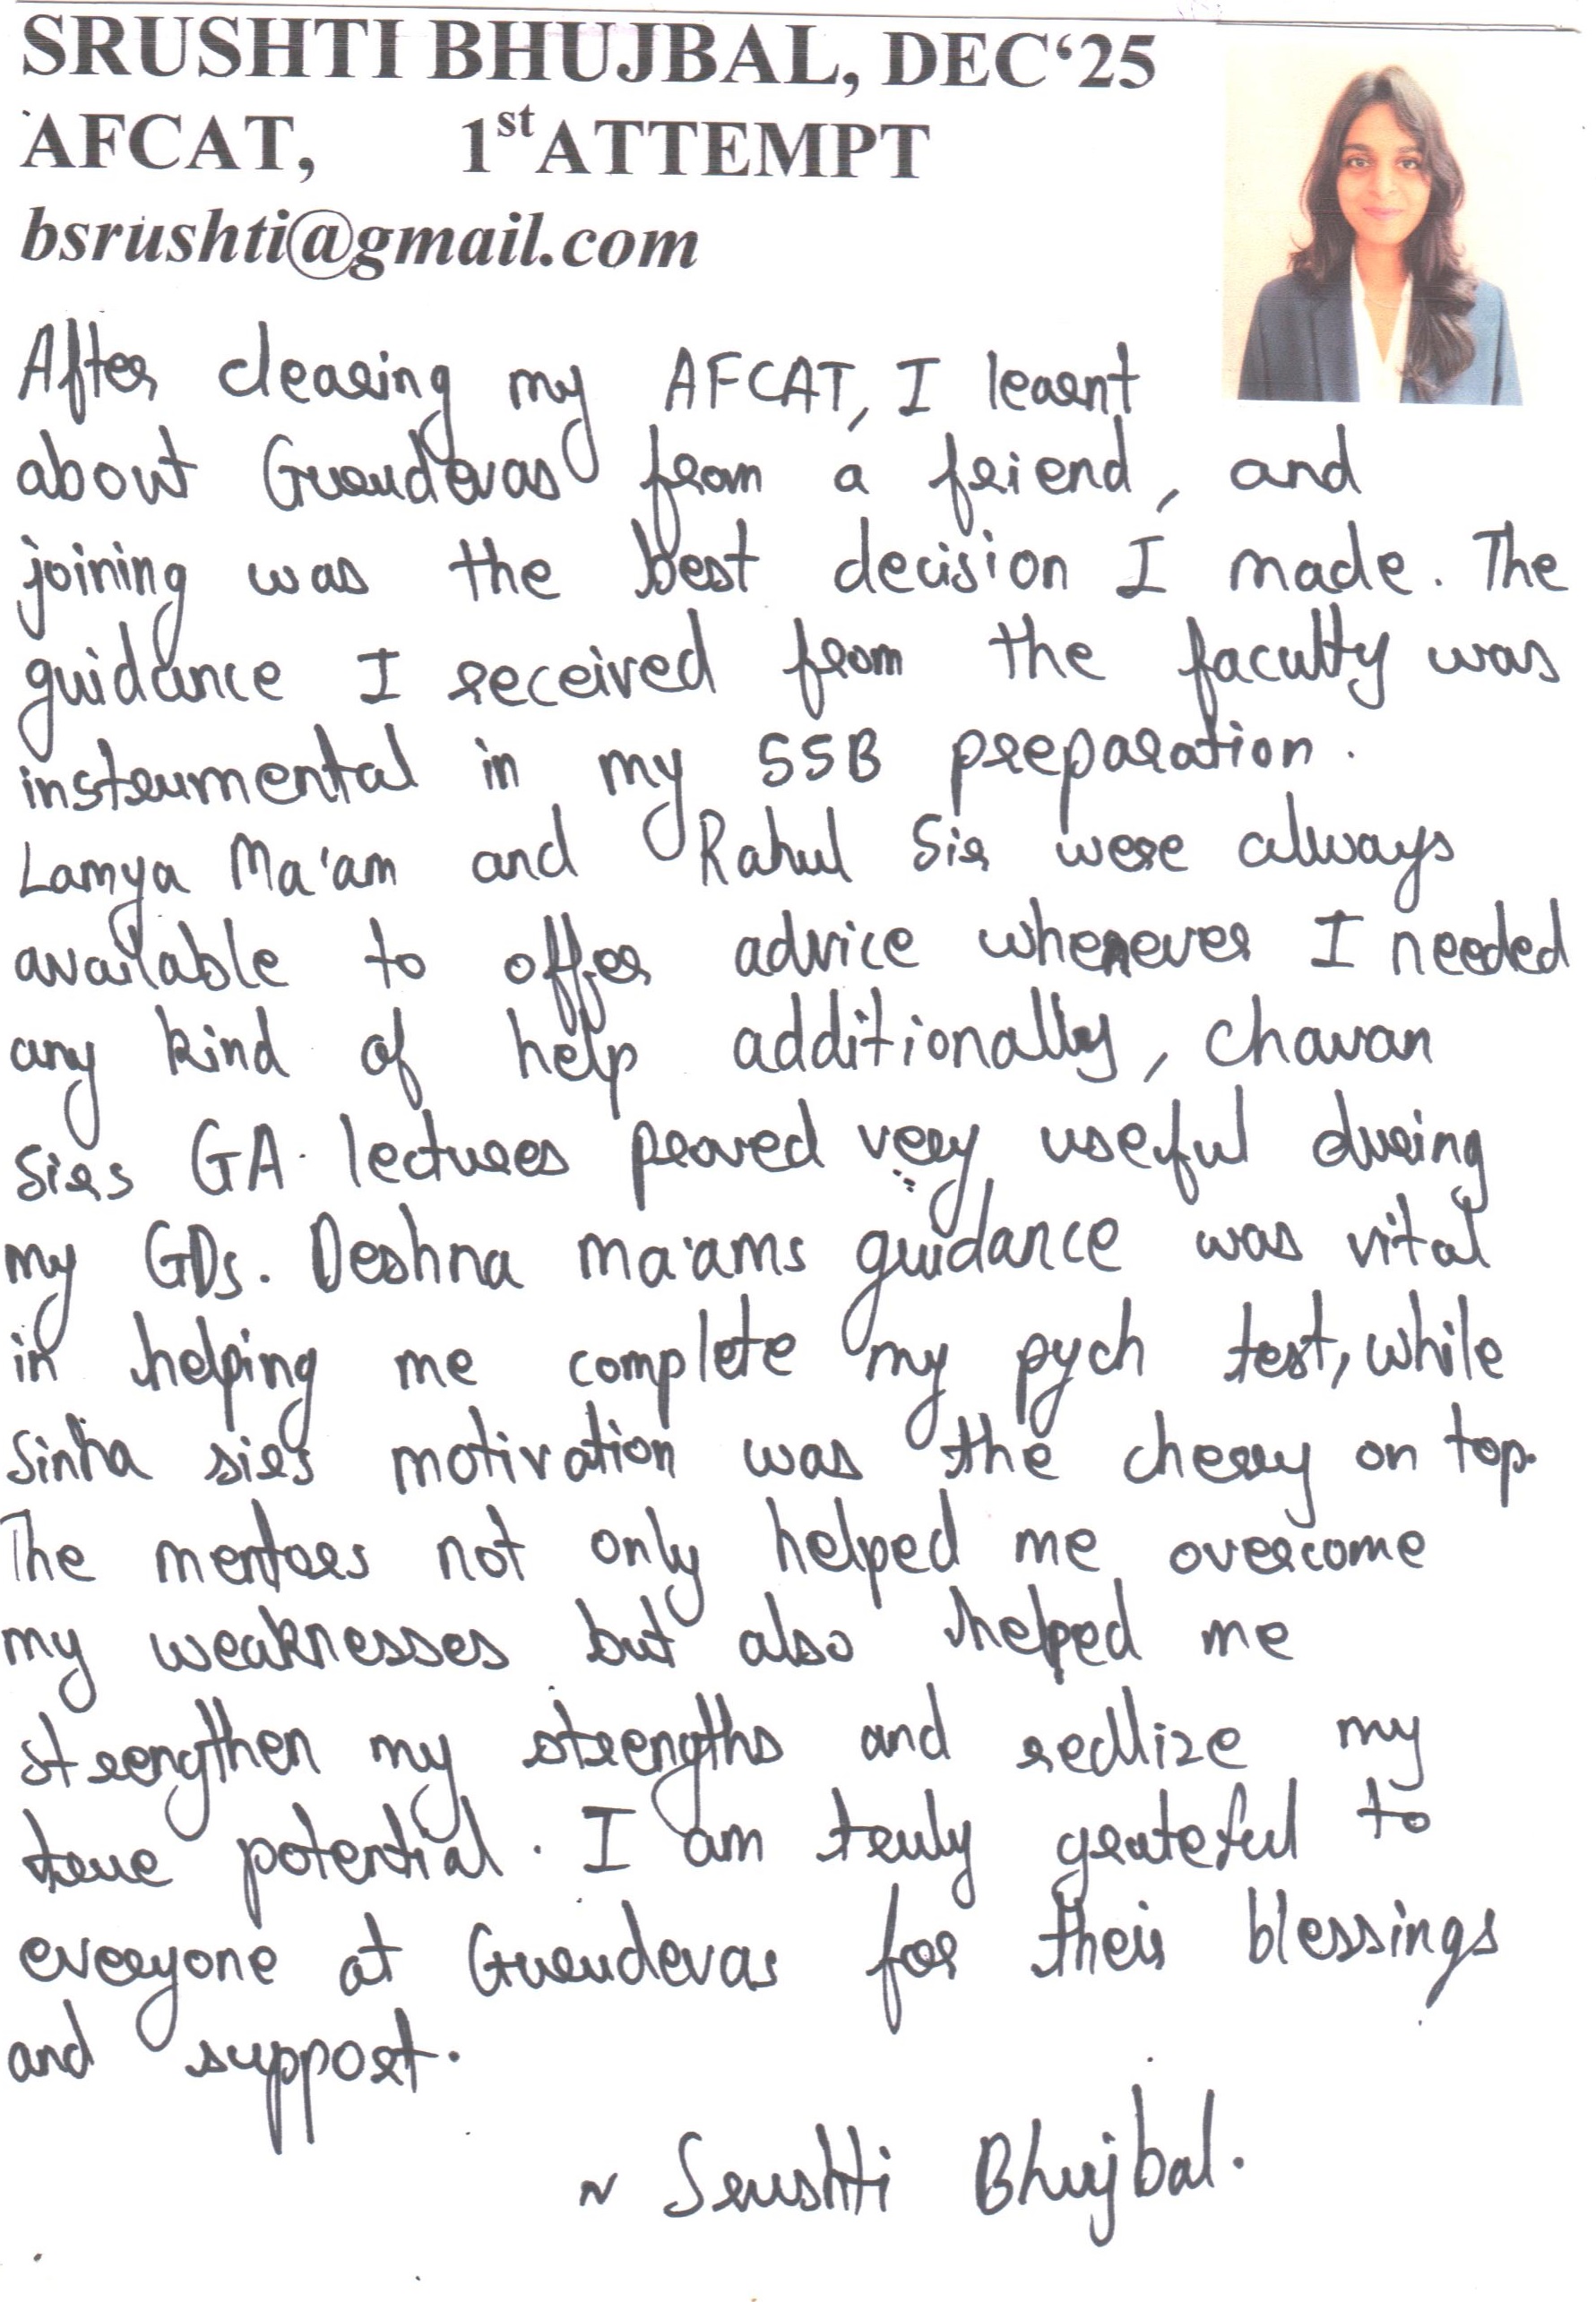 SRUSHTI BHUJBAL, DEC‘25
AFCAT, 1st ATTEMPT
bsrushti@gmail.com
After clearing my AFCAT, I learnt
about Gurudevas from a friend, and
joining was the best decision I made. The
guidance I received from the faculty was
instrumental in my SSB preparation.
Lamya Ma'am and Rahul Sir were always
available to offer advice whenever I needed
any kind of help additionally, Chavan
Sirs GA lectures proved very useful during
my GDs. Deshna Ma'ams guidance was vital
in helping me complete my pych test, while
Sinha sirs motivation was the cherry on top.
The mentors not only helped me overcome
my weaknesses but also helped me
strengthen my strengths and reallize my
true potential. I am truly grateful to
everyone at Gurudevas for their blessings
and support.
~ Srushti Bhujbal.